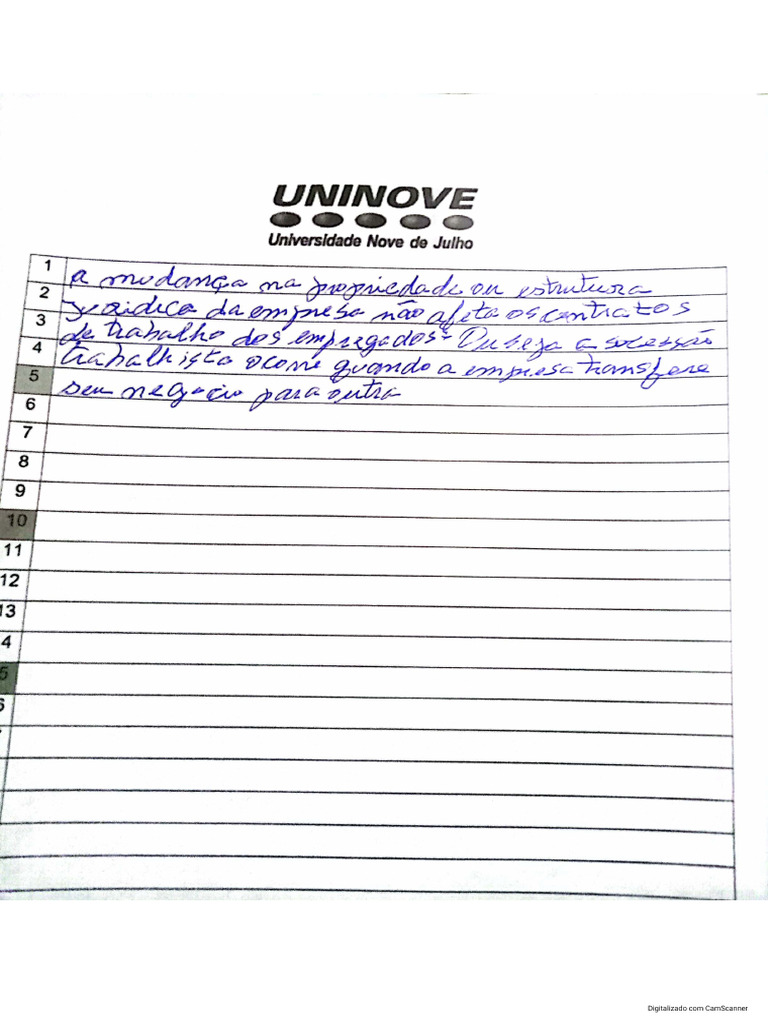 UNINOVE
Universidade Nove de Julho
1 A mudança na propriedade ou estrutura
2 Juridica da empresa não afeta os contratos
3 de trabalho dos empregados. Ou seja a sucessão
4 trabalhista ocorre quando a empresa transfere
5 seu negócio para outra
6
7
8
9
10
11
12
13
4
5
6
Digitalizado com CamScanner